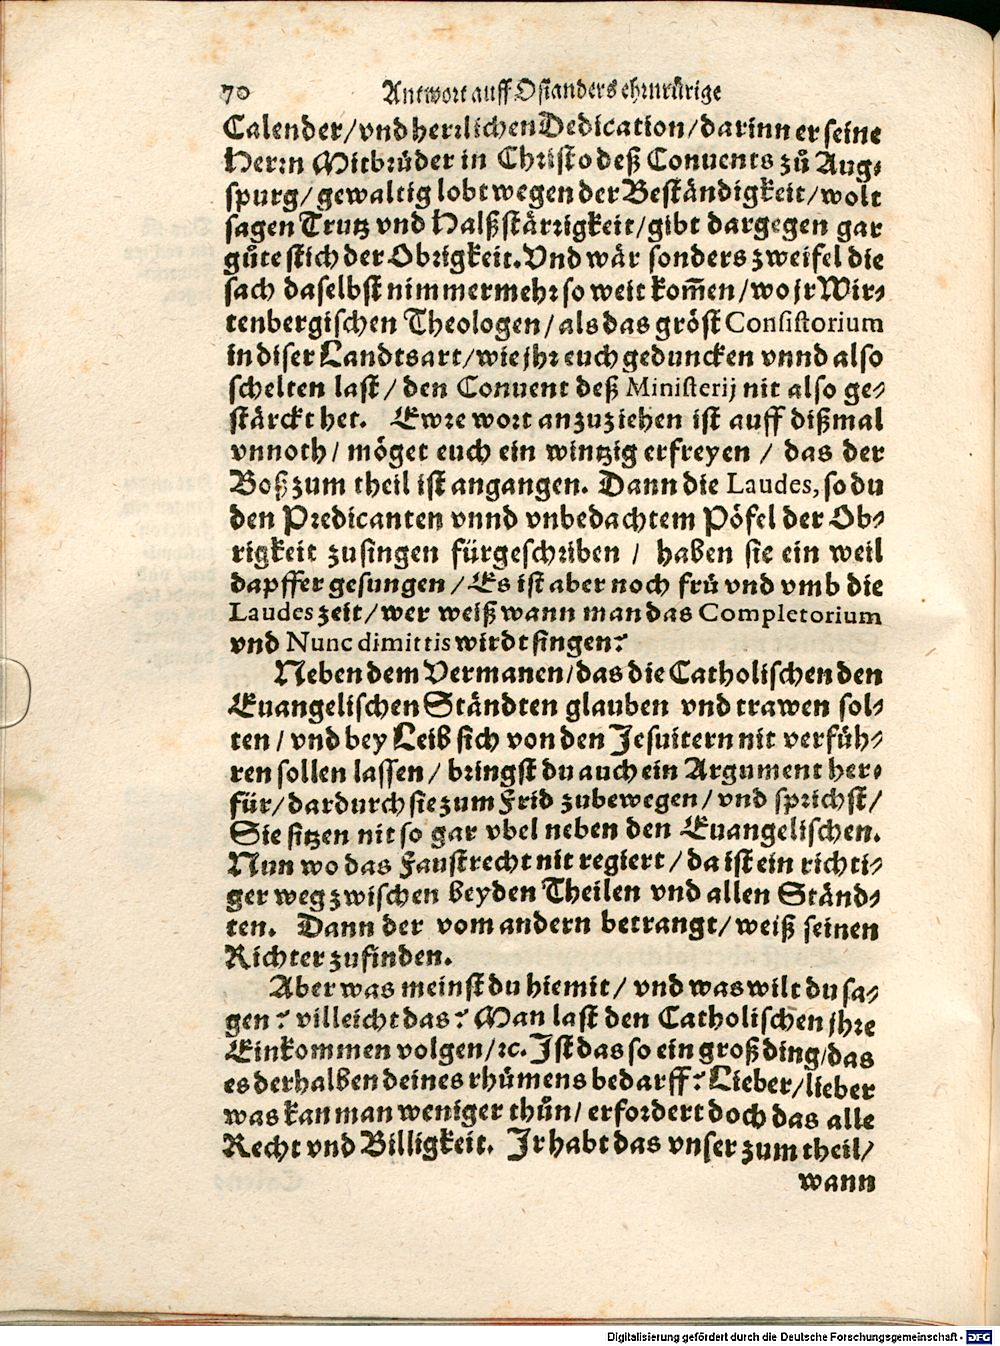 70 Antwort auff Osianders ehrnrürige
Calender/vnd herrlichen Dedication/darinn er seine
Herrn Mitbrüder in Christo deß Conuents zů Aug⸗
spurg/gewaltig lobt wegen der Beständigkeit/wolt
sagen Trutz vnd Halßstärrigkeit/gibt dargegen gar
gůte stich der Obrigkeit. Vnd wär sonders zweifel die
sach daselbst nimmermehr so weit kom̃en/wo jr Wir⸗
tenbergischen Theologen/als das gröst Consistorium
in diser Landtsart/wie jhr euch geduncken vnnd also
schelten last/den Conuent deß Ministerij nit also ge⸗
stärckt het. Ewre wort anzuziehen ist auff dißmal
vnnoth/möget euch ein wintzig erfreyen / das der
Boß zum theil ist angangen. Dann die Laudes, so du
den Predicanten vnnd vnbedachtem Pöfel der Ob⸗
rigkeit zusingen fürgeschriben / haben sie ein weil
dapffer gesungen/Es ist aber noch frů vnd vmb die
Laudes zeit/wer weiß wann man das Completorium
vnd Nunc dimittis wirdt singen?
Neben dem Vermanen/das die Catholischen den
Euangelischen Ständten glauben vnd trawen sol⸗
ten/vnd bey Leib sich von den Jesuitern nit verfüh⸗
ren sollen lassen/bringst du auch ein Argument her⸗
für/dardurch sie zum Frid zubewegen/vnd sprichst/
Sie sitzen nit so gar vbel neben den Euangelischen.
Nun wo das Faustrecht nit regiert/da ist ein richti⸗
ger weg zwischen beyden Theilen vnd allen Ständ⸗
ten. Dann der vom andern betrangt/weiß seinen
Richter zufinden.
Aber was meinst du hiemit/vnd was wilt du sa⸗
gen? villeicht das? Man last den Catholischen jhre
Einkommen volgen/ꝛc. Ist das so ein groß ding/das
es derhalben deines rhümens bedarff? Lieber/lieber
was kan man weniger thůn/erfordert doch das alle
Recht vnd Billigkeit. Ir habt das vnser zum theil/
wann
Digitalisierung gefördert durch die Deutsche Forschungsgemeinschaft - DFG